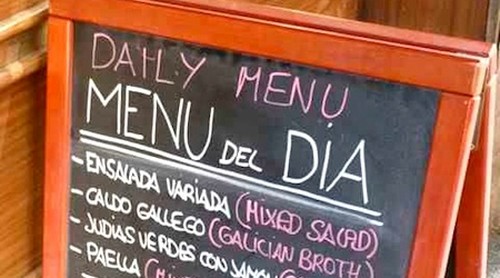 DAILY MENU
MENU DEL DÍA
- ENSALADA VARIADA (MIXED SALAD)
- CALDO GALLEGO (GALICIAN BROTH)
- JUDIAS VERDES CON
- PAELLA